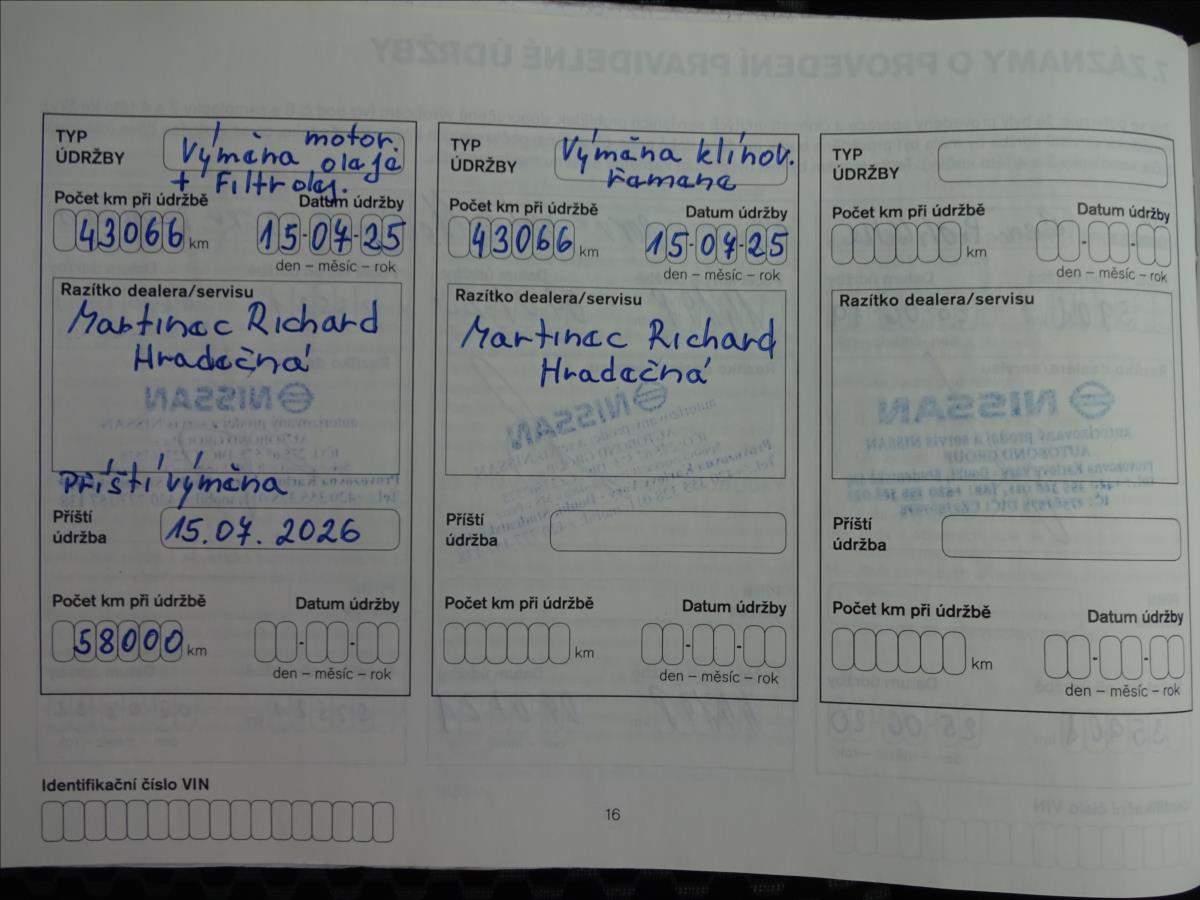 TYP
ÚDRŽBY
Výměna motor.
oleje
+ Filtr olej.
Počet km při údržbě
Datum údržby
43066 km
15-07-25
den – měsíc – rok
Razítko dealera/servisu
Martinec Richard
Hradečná
Příští výměna
Příští
údržba
15.07.2026
Počet km při údržbě
Datum údržby
58000 km
den – měsíc – rok
TYP
ÚDRŽBY
Výměna klínov.
řemene
Počet km při údržbě
Datum údržby
43066 km
15-07-25
den – měsíc – rok
Razítko dealera/servisu
Martinec Richard
Hradečná
Příští
údržba
Počet km při údržbě
Datum údržby
km
den – měsíc – rok
TYP
ÚDRŽBY
Počet km při údržbě
Datum údržby
km
den – měsíc – rok
Razítko dealera/servisu
Příští
údržba
Počet km při údržbě
Datum údržby
km
den – měsíc – rok
Identifikační číslo VIN
16
7. ZÁZNAMY O PROVEDENÍ PRAVIDELNÉ ÚDRŽBY
NISSAN
NISSAN
NISSAN